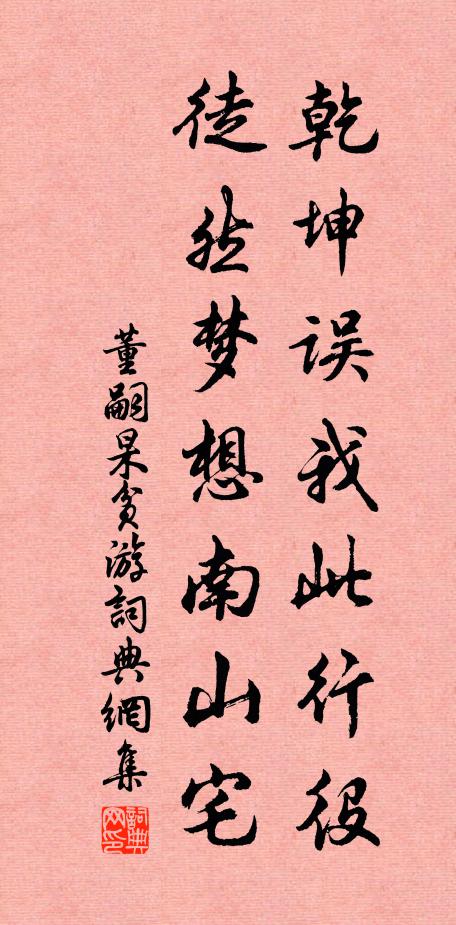 乾坤误我此行役
徒然梦想南山宅
董嗣杲贫游詞典網集
詞典网印